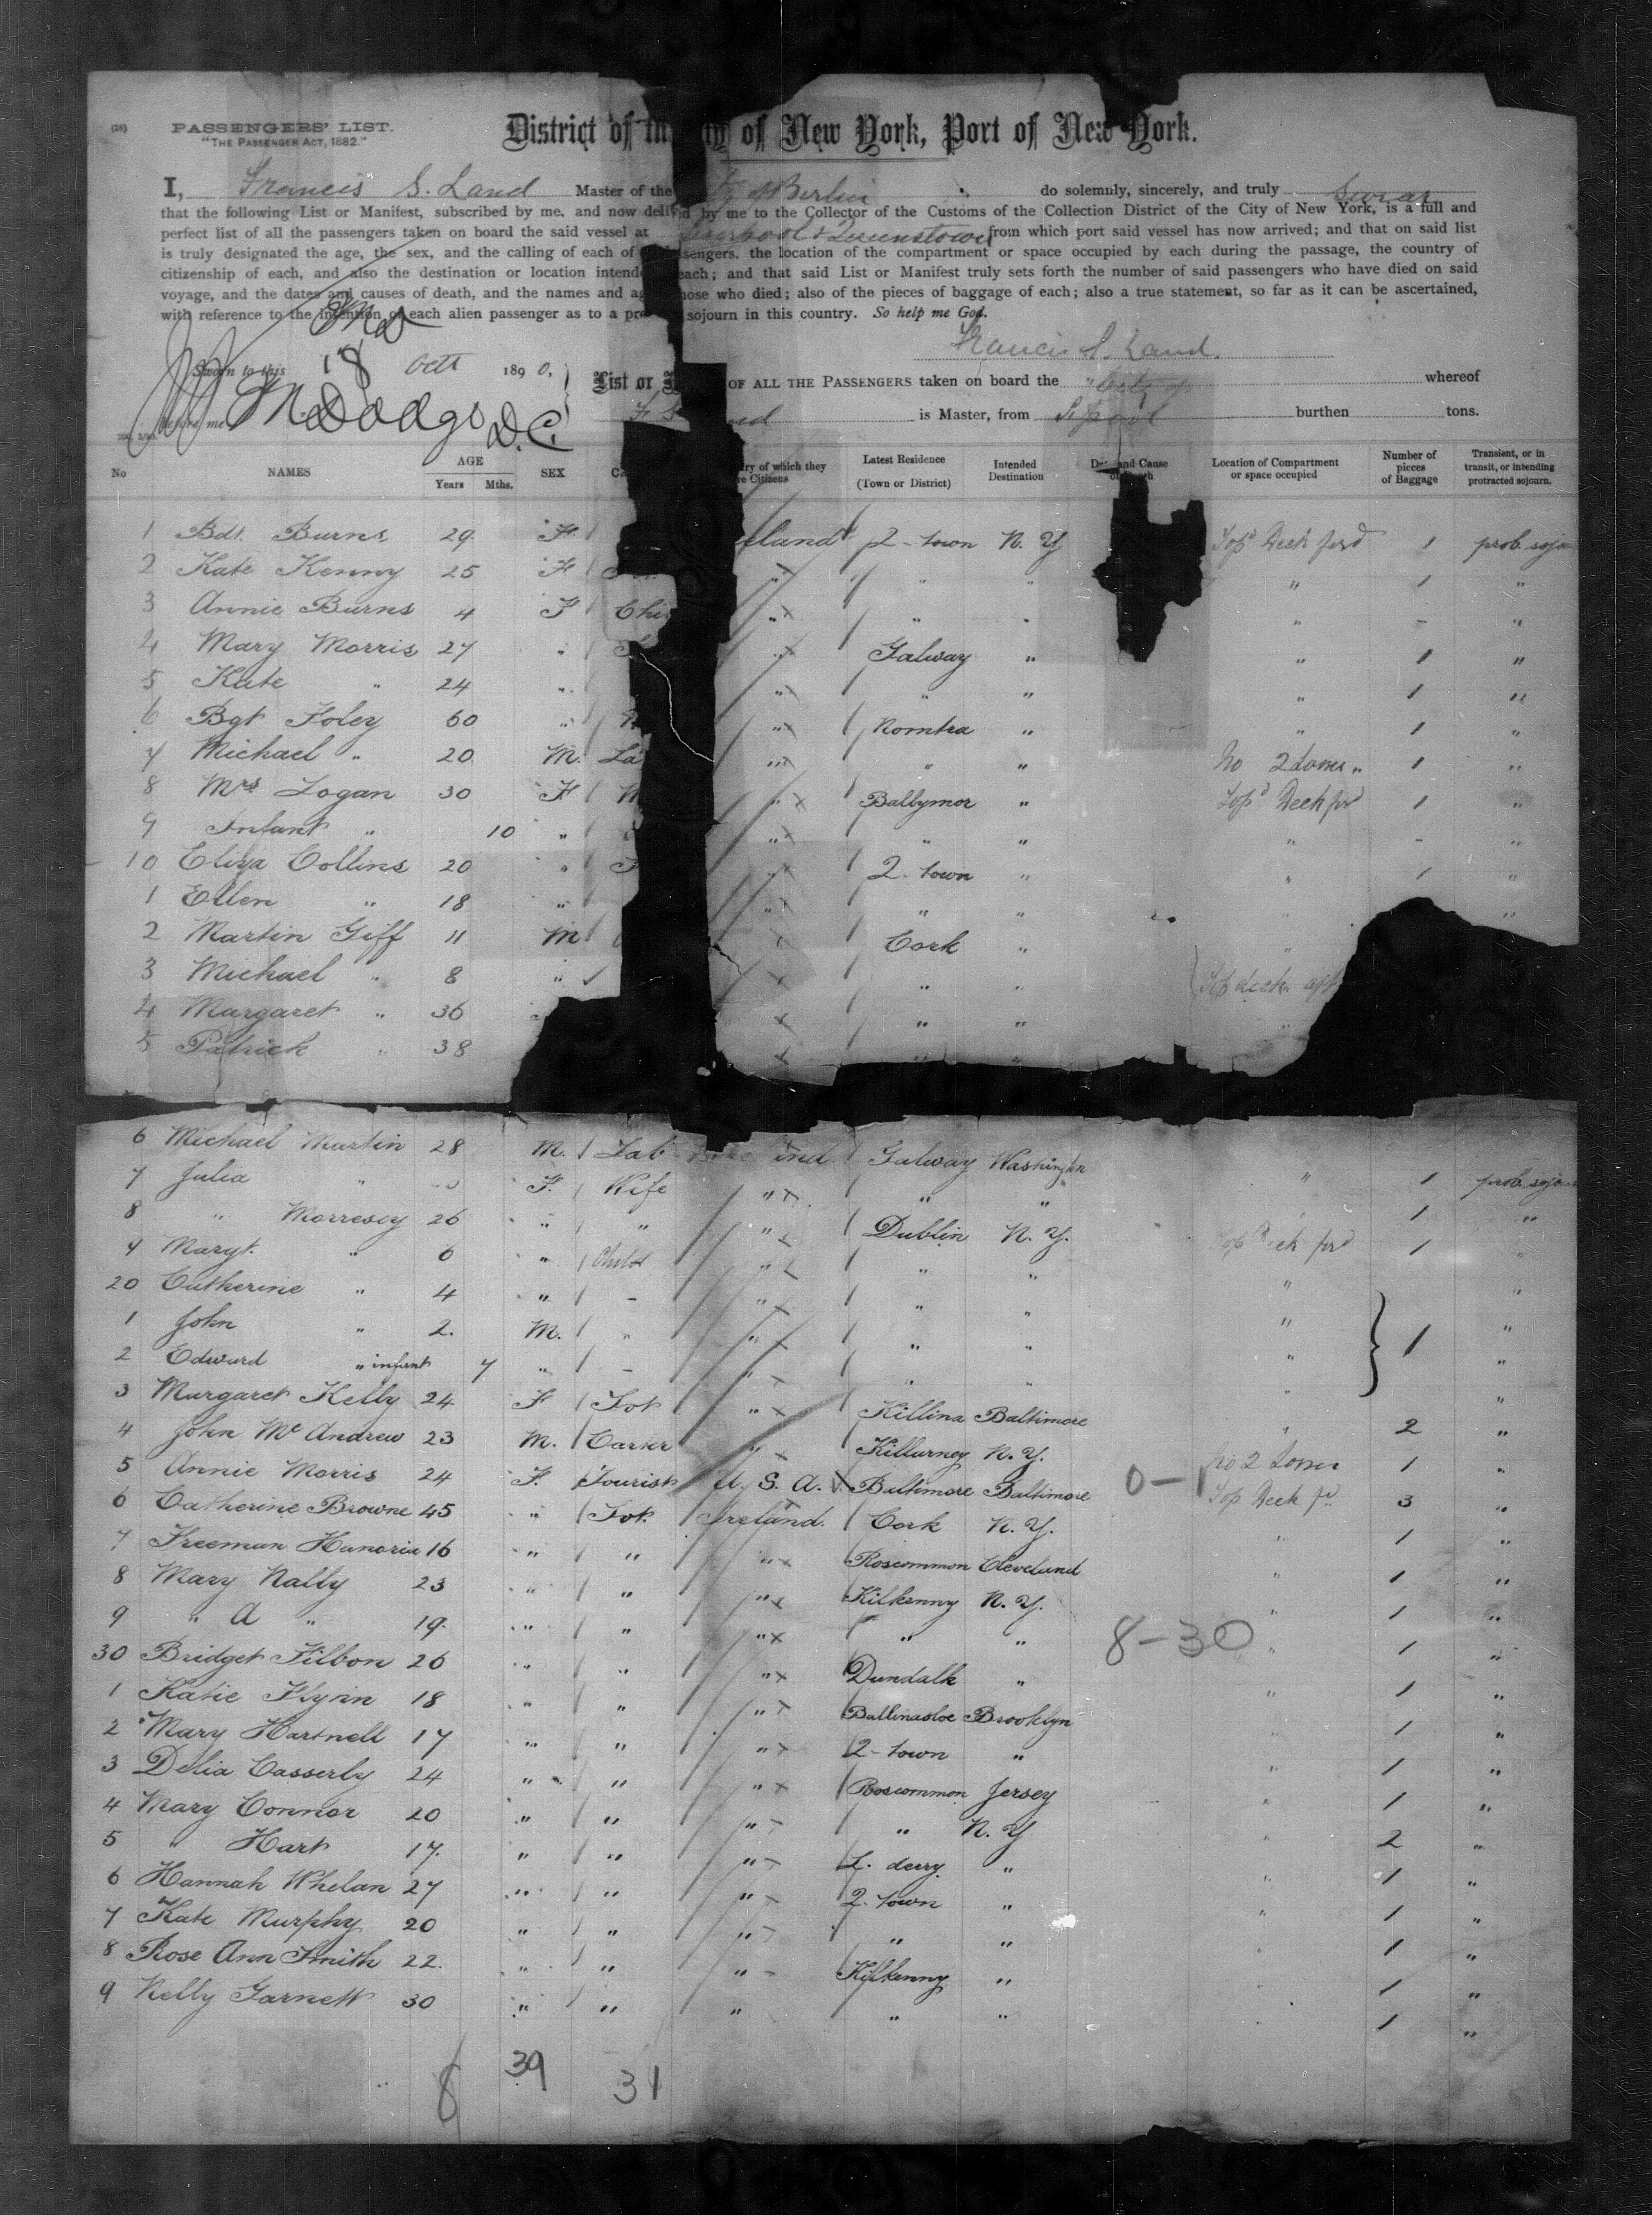 (18) PASSENGERS' LIST.
"THE PASSENGER ACT, 1882."
District of th ty of New York, Port of New York.
I, Francis S. Land Master of the ty of Berlin do solemnly, sincerely, and truly Swear
that the following List or Manifest, subscribed by me, and now deliv d by me to the Collector of the Customs of the Collection District of the City of New York, is a full and
perfect list of all the passengers taken on board the said vessel at Liverpool & Queenstown from which port said vessel has now arrived; and that on said list
is truly designated the age, the sex, and the calling of each of ssengers, the location of the compartment or space occupied by each during the passage, the country of
citizenship of each, and also the destination or location intende each; and that said List or Manifest truly sets forth the number of said passengers who have died on said
voyage, and the dates and causes of death, and the names and ag hose who died; also of the pieces of baggage of each; also a true statement, so far as it can be ascertained,
with reference to the intention of each alien passenger as to a pro sojourn in this country. So help me God.
Francis S. Land.
Sworn to this 18 Octr 1890,
before me
List or OF ALL THE PASSENGERS taken on board the "City of whereof
F S nd is Master, from L'pool burthen tons.
No NAMES AGE Years Mths. SEX Ca ry of which they re Citizens Latest Residence (Town or District) Intended Destination Date and Cause of Death Location of Compartment or space occupied Number of pieces of Baggage Transient, or in transit, or intending protracted sojourn.
1 Bdt. Burns 29 F eland 2-town N. Y Top Deck fwd 1 prob. sojo
2 Kate Kenny 25 F " " " " 1 "
3 Annie Burns 4 F Chi " " " " - "
4 Mary Morris 27 " " Galway " " 1 "
5 Kate " 24 " " " " " 1 "
6 Bgt Foley 60 " " Romtra " " 1 "
7 Michael " 20 M. La " " " No 2 lower " 1 "
8 Mrs Logan 30 F " Ballymor " Top Deck fwd 1 "
9 Infant " 10 " " " " " - "
10 Eliza Collins 20 " " 2-town " " 1 "
1 Ellen " 18 " " " " " "
2 Martin Giff 11 M Cork " "
3 Michael " 8 " " " Top deck aft
4 Margaret " 36 " " "
5 Patrick " 38 " "
6 Michael Martin 28 M. Lab Galway Washington " 1 prob. sojo
7 Julia " F. Wife " " " 1 "
8 " Morresey 26 " " " Dublin N. Y. Top Deck fwd 1 "
9 Maryt. " 6 " Child " " " " "
20 Catherine " 4 " - " " " " "
1 John " 2. M. " " " " " 1 "
2 Edward " infant 7 " - " " " " "
3 Margaret Kelly 24 F " Killina Baltimore " 2 "
4 John McAndrew 23 M. " Killarney N. Y. No 2 Lower 1 "
5 Annie Morris 24 F. Tourist U. S. A. Baltimore Baltimore 0-1 Top Deck fd 3 "
6 Catherine Browne 45 " Ireland. Cork N. Y. " 1 "
7 Freeman Hanoria 16 " " " Roscommon Cleveland " 1 "
8 Mary Nally 23 " " " Kilkenny N. Y. " 1 "
9 " A " 19. " " " " " 8-30 " 1 "
30 Bridget Filbon 26 " " " Dundalk " " 1 "
1 Katie Flynn 18 " " " Ballinasloe Brooklyn " 1 "
2 Mary Hartnell 17 " " " 2-town " " 1 "
3 Delia Casserly 24 " " " Roscommon Jersey " 1 "
4 Mary Connor 20 " " " " N. Y " 2 "
5 " Hart 17. " " " L. derry " " 1 "
6 Hannah Whelan 27 " " " 2-town " " 1 "
7 Kate Murphy 20 " " " " " " 1 "
8 Rose Ann Smith 22. " " " Kilkenny " " 1 "
9 Kelly Garnett 30 " " " " " " 1 "
8 39 31